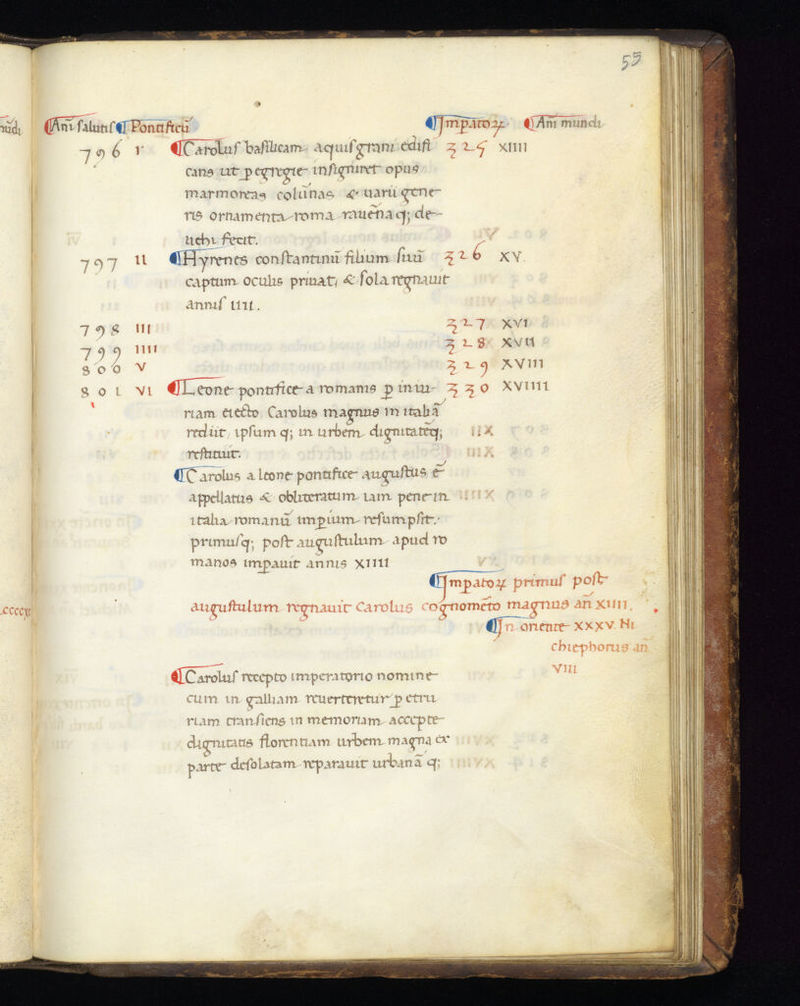 55
Ani salutis Pontificũ Impatoꝝ Ani mundi
796 I Carolus basilicam aquisgrani edifi 325 XIIII
cans ut ꝑ egregie insigniret opus
marmoreas colũnas & uarii gene
ris ornamenta roma rauẽna qꝫ de
uehi fecit.
797 II Hyrenes constantinũ filium suũ 326 XV
captum oculis priuat, & sola regnauit
annis IIII.
798 III 327 XVI
799 IIII 328 XVII
800 V 329 XVIII
801 VI Leone pontifice a romanis ꝑ iniu 330 XVIIII
riam eiecto Carolus magnus in italiã
rediit, ipsum qꝫ in urbem dignitatẽqꝫ
restituit.
Carolus a leone pontifice augustus ẽ
appellatus & obliteratum iam pene in
italia romanũ impium resumpsit.
primusqꝫ post augustulum apud ro
manos impauit annis XIIII
Impatoꝝ primus post
augustulum regnauit Carolus cognomẽto magnus añ XIIII.
In oriente XXXV. Ni
chiephorus añ
VIII
Carolus recepto imperatorio nomine
cum in galliam reuerteretur ꝑ etru
riam transiens in memoriam accepte
dignitatis florentiam urbem magna ex
parte desolatam reparauit urbanã qꝫ